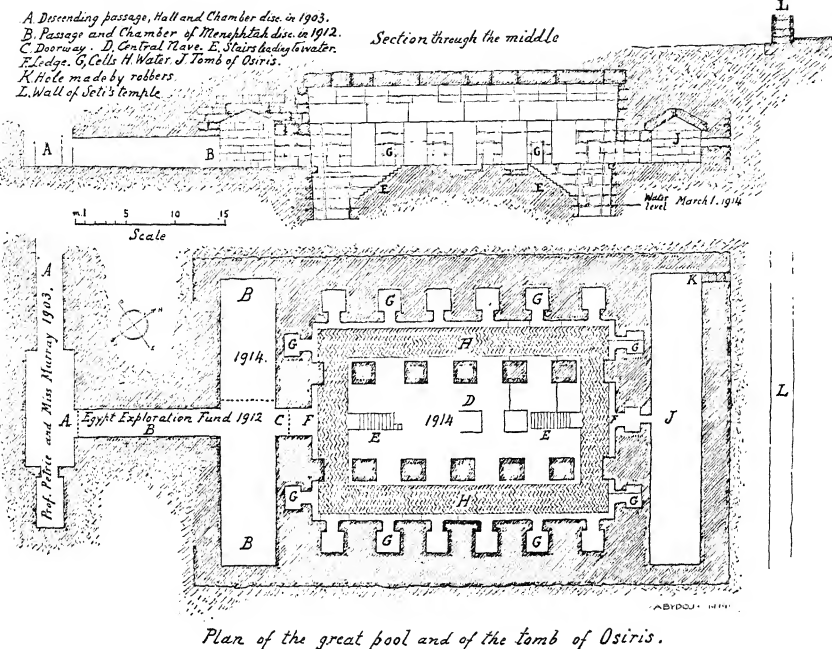 A. Descending passage, Hall and Chamber disc. in 1903.
B. Passage and Chamber of Menephtah disc. in 1912.
C. Doorway. D. Central Nave. E. Stairs leading to water.
F. Ledge. G. Cells H. Water. J. Tomb of Osiris.
K. Hole made by robbers
L. Wall of Seti's temple
Section through the middle
L
A
B
G
G
J
E
E
Water level March 1. 1914
m. 1 5 10 15
Scale
A
Prof. Petrie and Miss Murray 1903.
B
1914.
A
Egypt Exploration Fund 1912
B
C
F
B
G
G
G
G
H
K
D
E
1914
E
F
J
L
H
G
G
G
G
ABYDOS 1914
Plan of the great pool and of the tomb of Osiris.